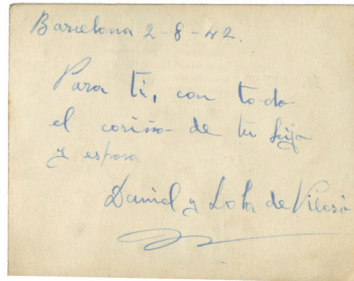 Barcelona 2-8-42.
Para ti, con todo
el cariño de tu hijo
y esposa
Daniel y Lola de